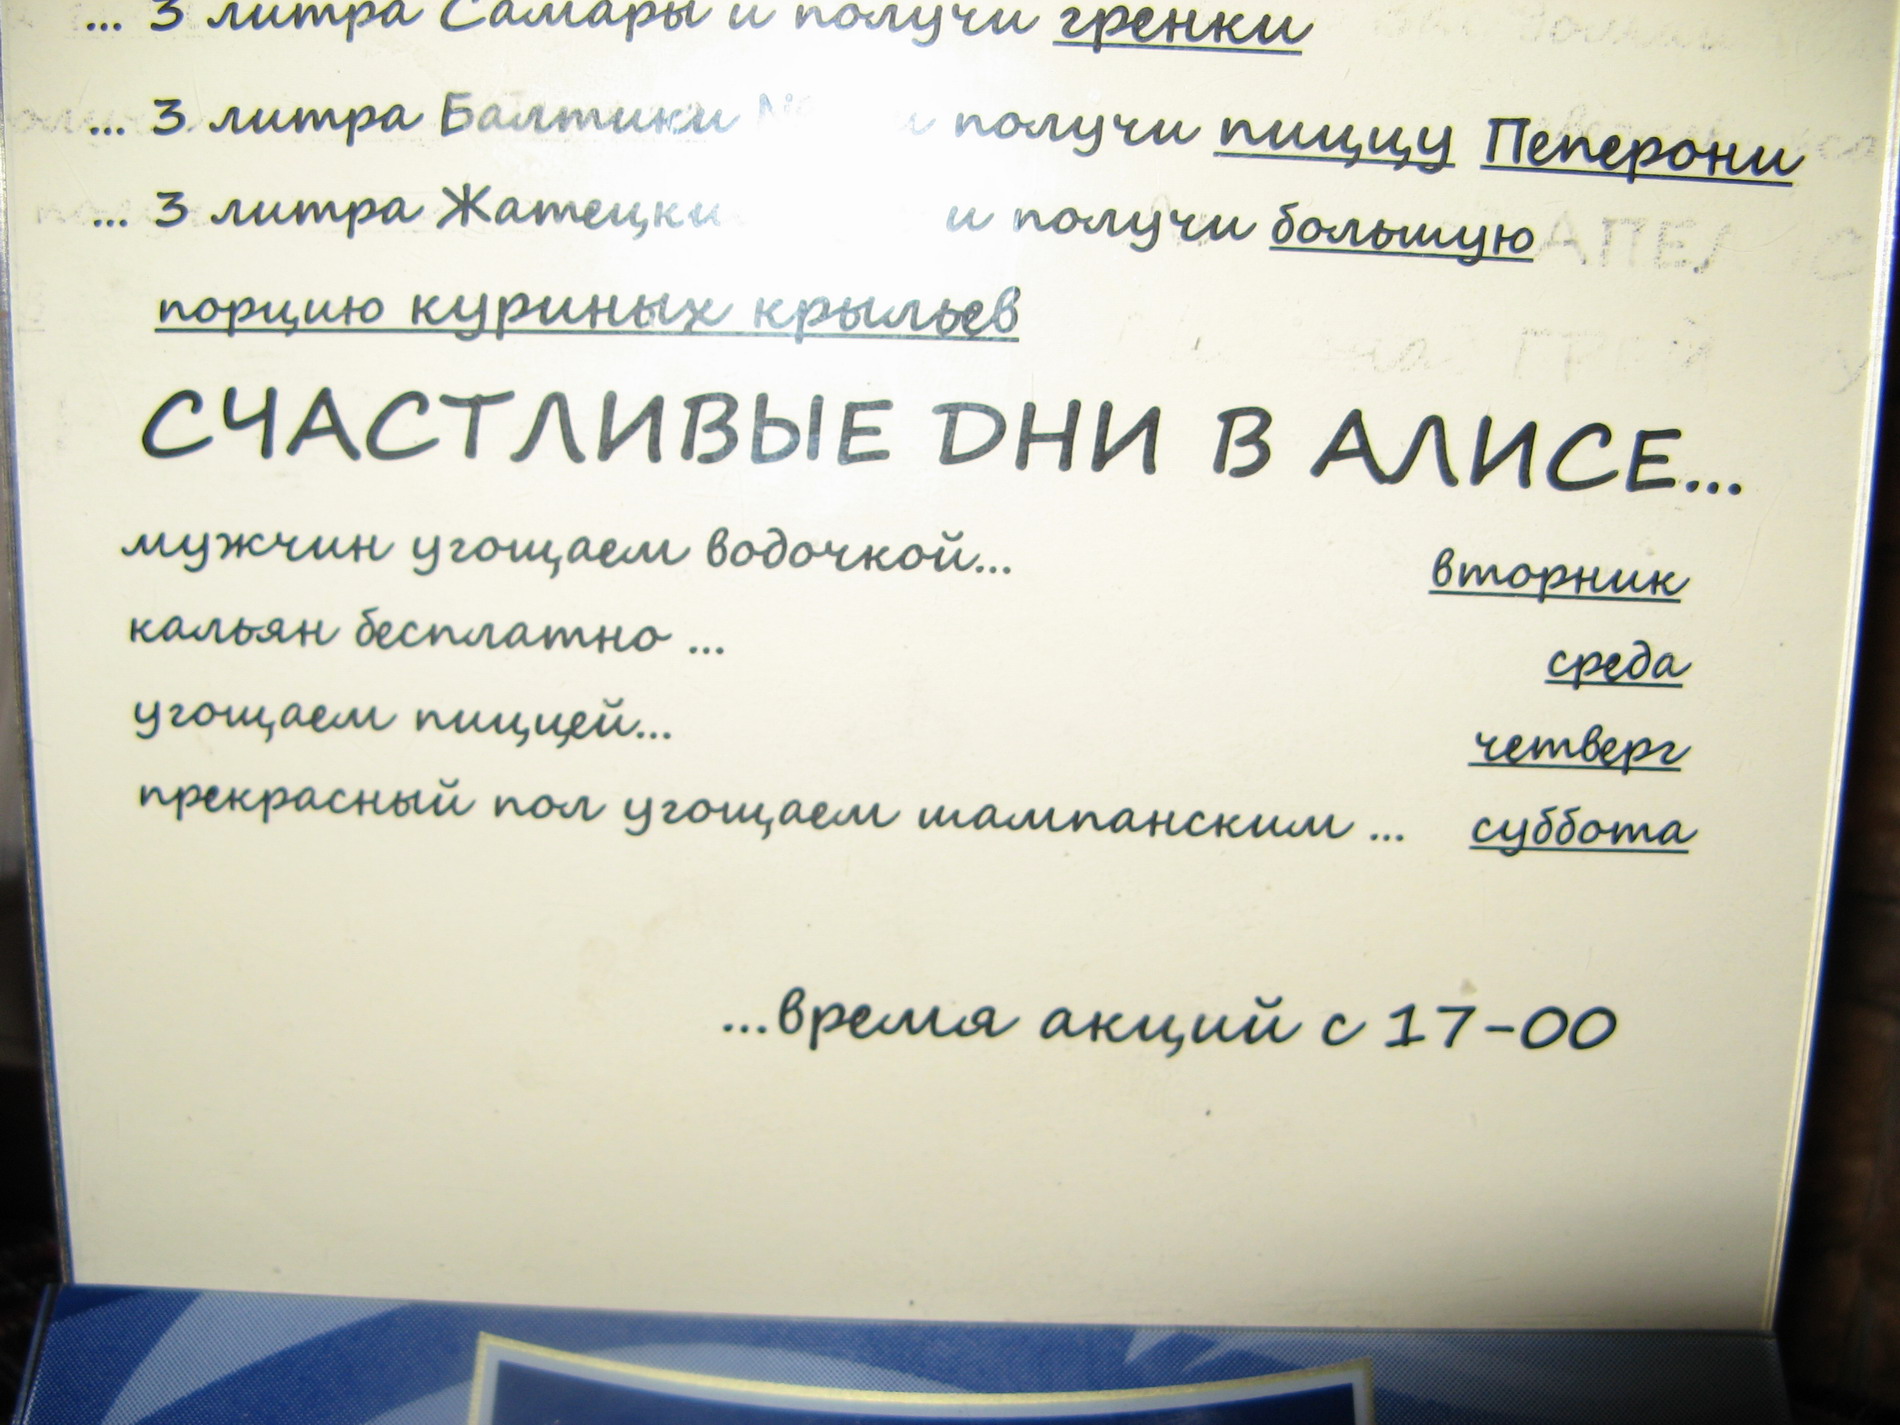 ... 3 литра Самары и получи гренки
... 3 литра Балтики и получи пиццу Пеперони
... 3 литра и получи большую
порцию куриных крыльев
СЧАСТЛИВЫЕ ДНИ В АЛИСЕ...
мужчин угощаем водочкой... вторник
кальян бесплатно ... среда
угощаем пиццей... четверг
прекрасный пол угощаем шампанским ... суббота
...время акций с 17-00